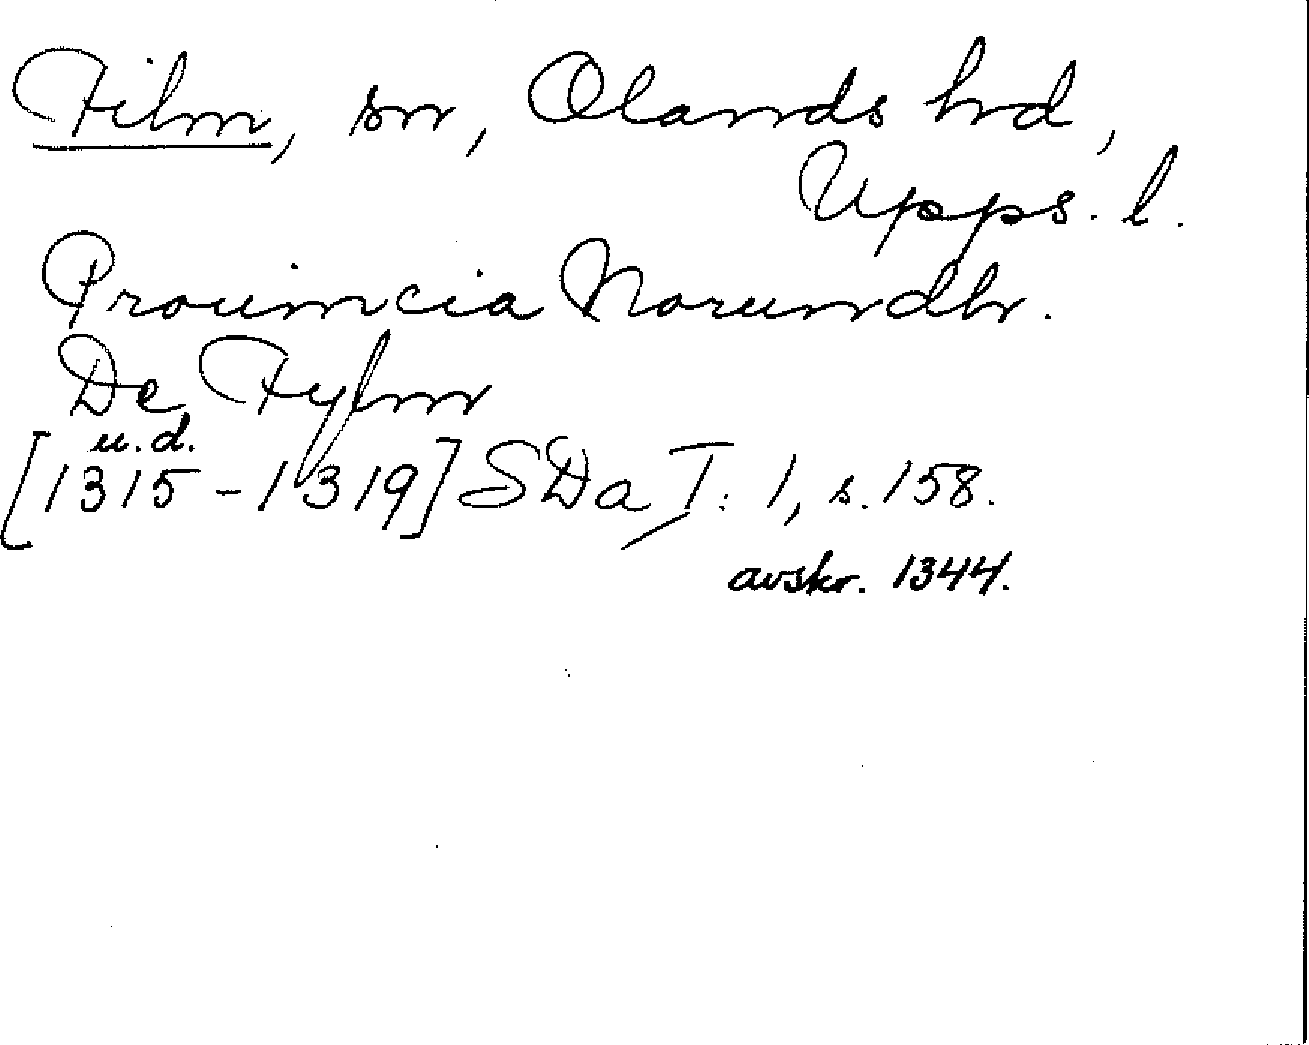 Film, sn, Olands hd,
Upps. l.
Prouincia Norundhr.
De Fylm
u.d.
[1315-1319] SDa I: 1, s. 158.
avskr. 1344.